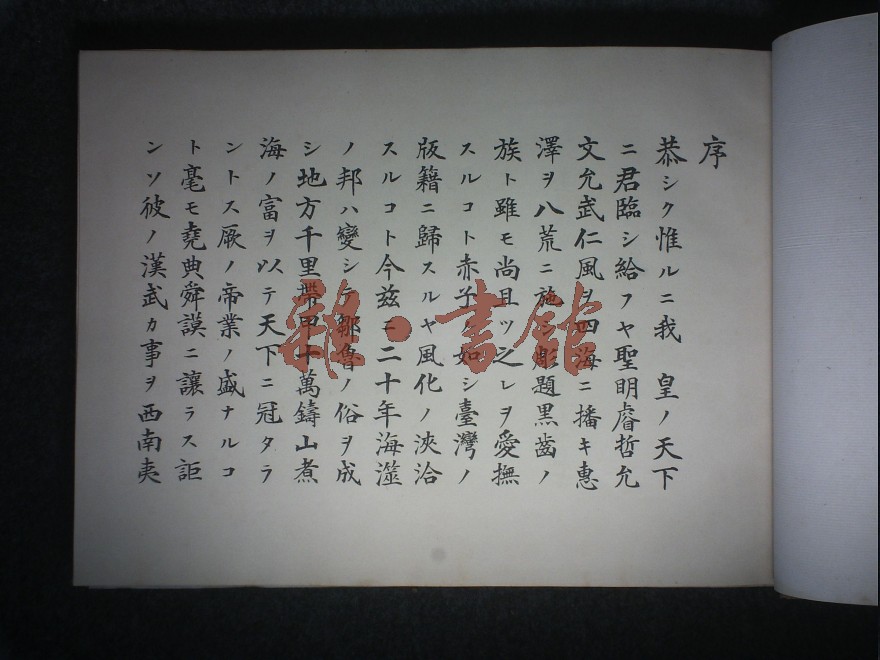 序
恭シク惟ルニ我 皇ノ天下
ニ君臨シ給フヤ聖明睿哲允
文允武仁風ヲ四海ニ播キ惠
澤ヲ八荒ニ施シ彫題黒齒ノ
族ト雖モ尚且ツ之レヲ愛撫
スルコト赤子ノ如シ臺灣ノ
版籍ニ歸スルヤ風化ノ浹洽
スルコト今茲ニ二十年海澨
ノ邦ハ變シテ鄒魯ノ俗ヲ成
シ地方千里帶甲十萬鑄山煮
海ノ富ヲ以テ天下ニ冠タラ
ントス厥ノ帝業ノ盛ナルコ
ト毫モ堯典舜謨ニ讓ラス詎
ンソ彼ノ漢武カ事ヲ西南夷
雜·書館